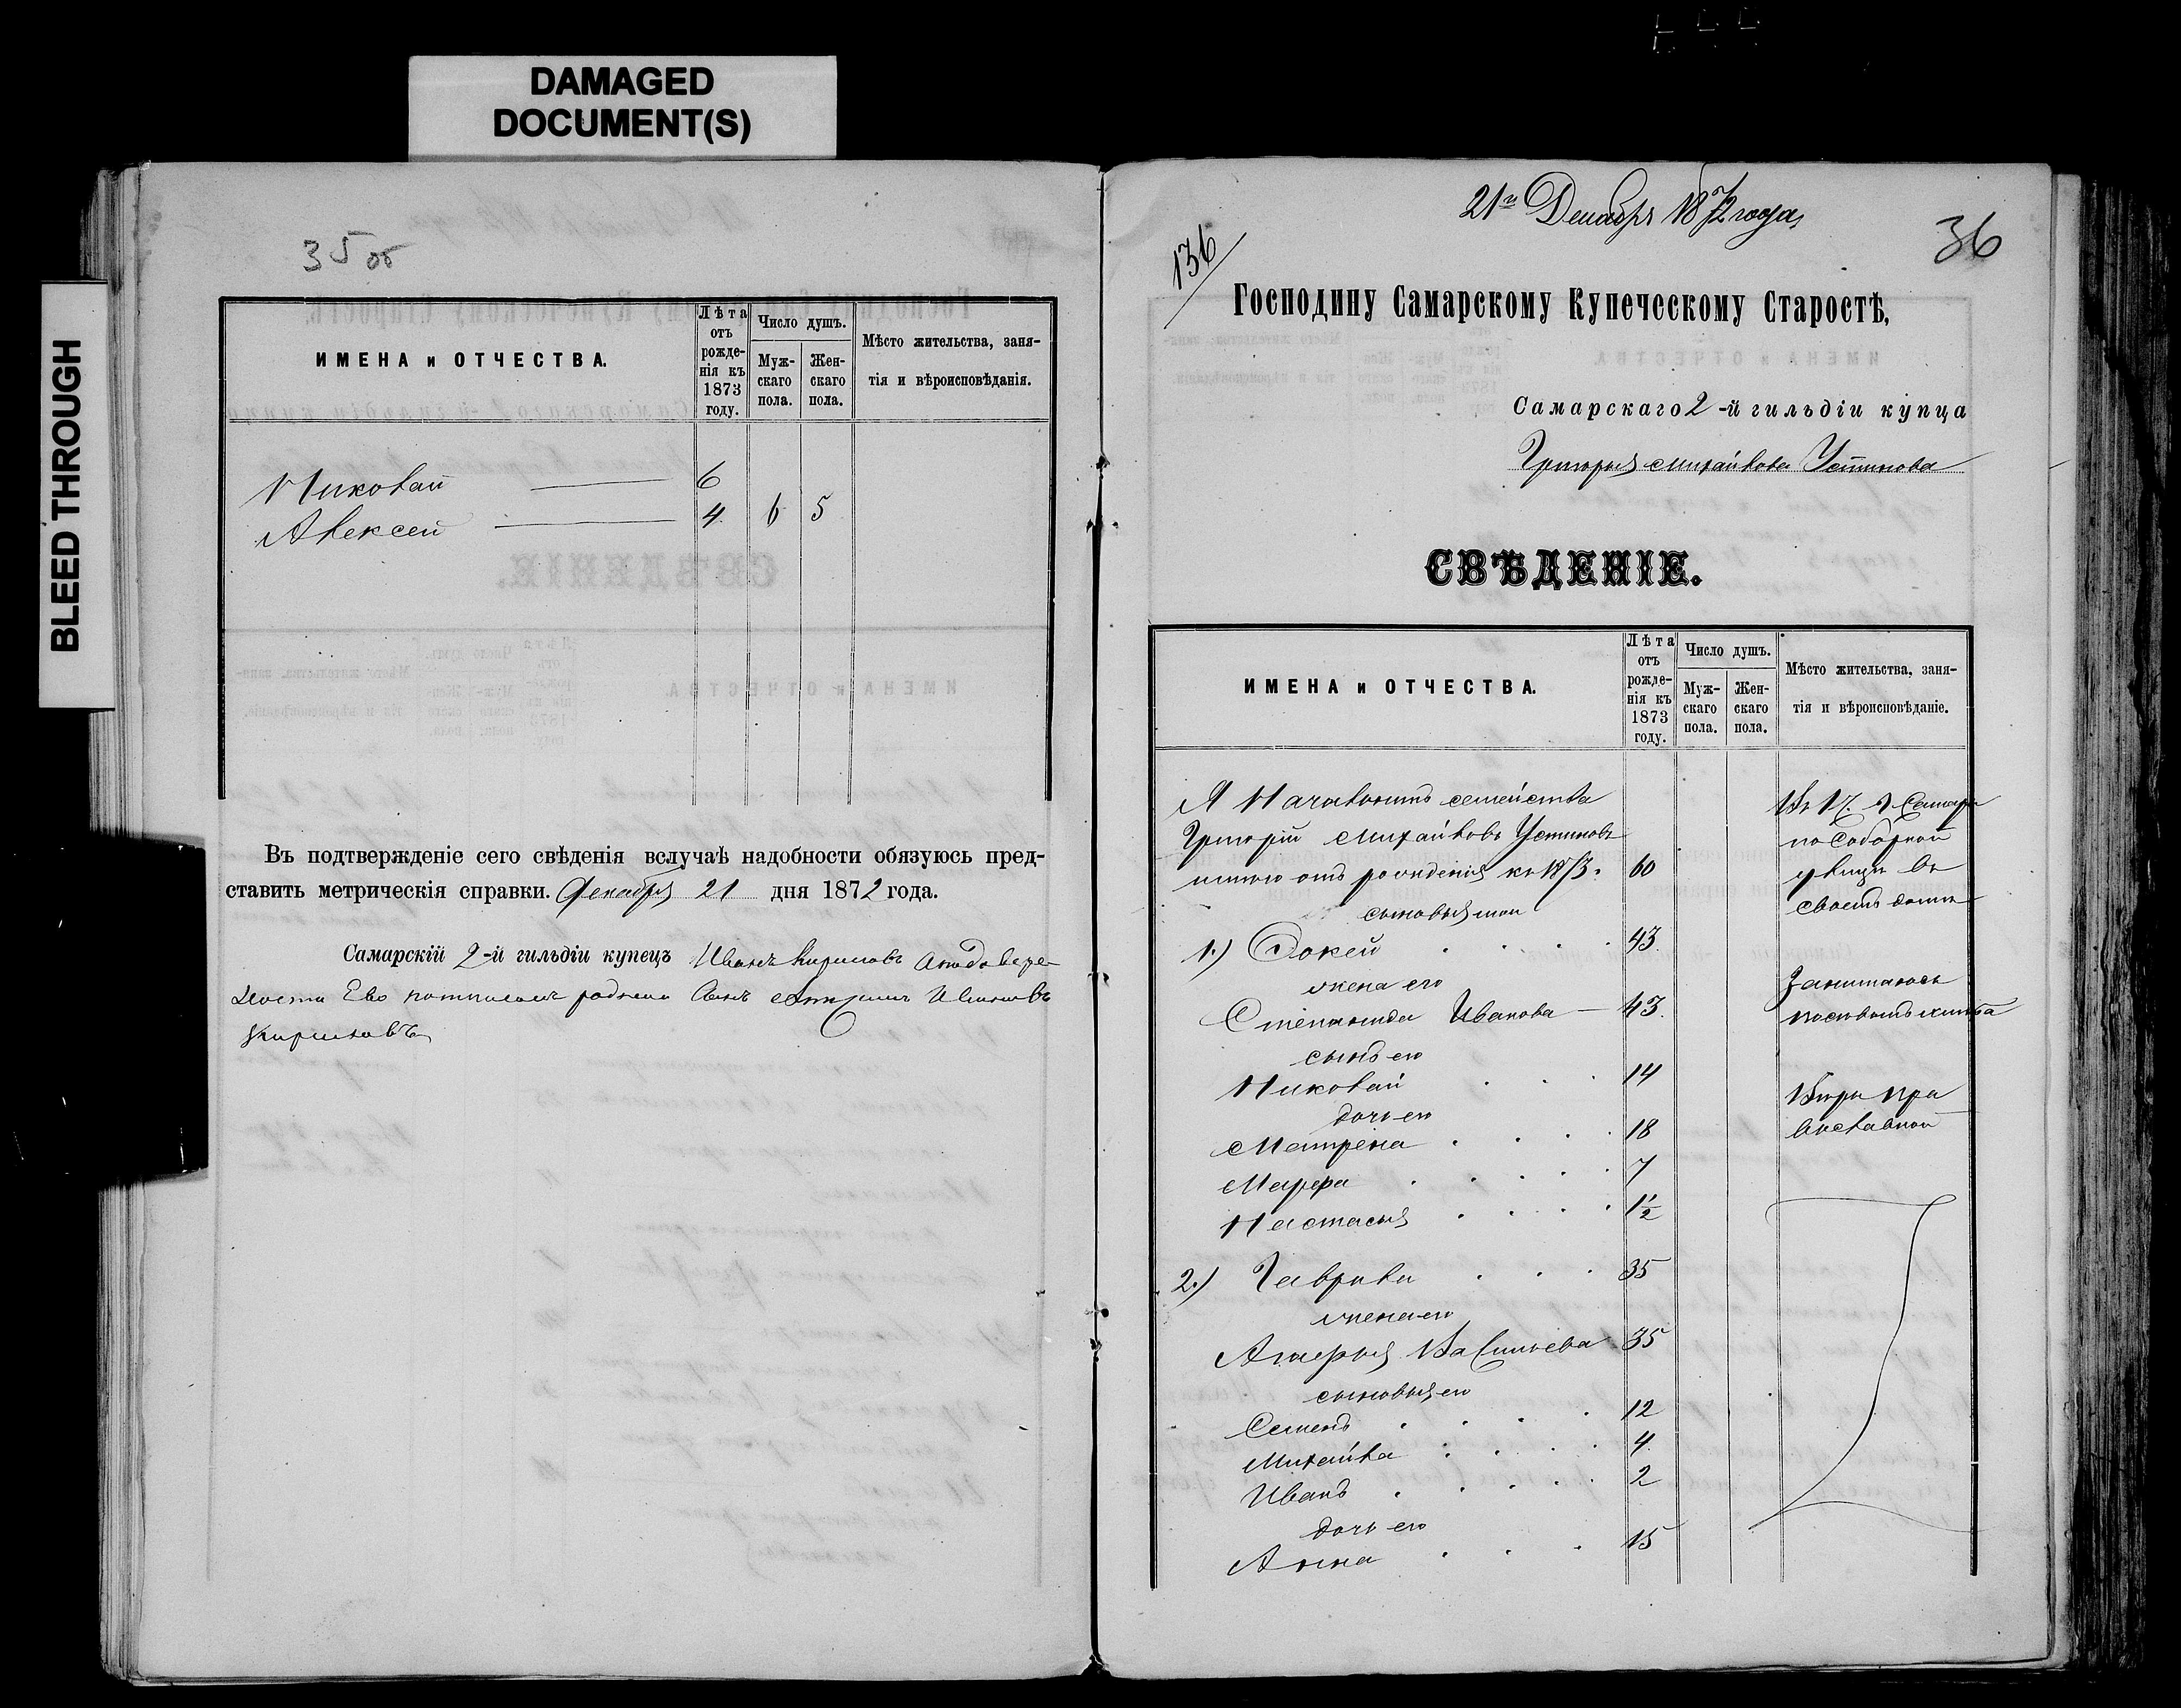 DAMAGED
DOCUMENT(S)
BLEED THROUGH
35 об
ИМЕНА и ОТЧЕСТВА.
Лѣта отъ рожденія къ 1873 году.
Число душъ.
Мужскаго пола.
Женскаго пола.
Мѣсто жительства, занятія и вѣроисповѣданія.
Николай 6
Алексей 4 6 5
Въ подтвержденіе сего свѣденія вслучаѣ надобности обязуюсь пред-
ставить метрическія справки. Декабря 21 дня 1872 года.
Самарскій 2-й гильдіи купецъ Иванъ Кириловъ
Ево родной Сынъ Ивановъ
Кириловъ
21го Декабря 1872 года
136
36
Господину Самарскому Купеческому Старостѣ,
Самарскаго 2-й гильдіи купца
Григорья Михайлова Устинова
СВѢДЕНІЕ.
ИМЕНА и ОТЧЕСТВА.
Лѣта отъ рожденія къ 1873 году.
Число душъ.
Мужскаго пола.
Женскаго пола.
Мѣсто жительства, занятія и вѣроисповѣданіе.
Я Начальникъ семейства
Григорій Михайловъ Устиновъ
отъ рожденія къ 1873. 60
сыновья мои
1.) Фокей 43.
жена его
Степанида Иванова 43.
сынъ его
Николай 14
дочь его
Матрена 18
Марфа 7
Настасья 1 1/2
2.) Гаврила 35
жена его
Агафья Васильева 35
сыновья его
Семенъ 12
Михайла 4
Иванъ 2
дочь его
Анна 15
Въ Г. Самаре
по Соборной
улице въ
своемъ доме
Занимаюсь
Веры пра
вославной